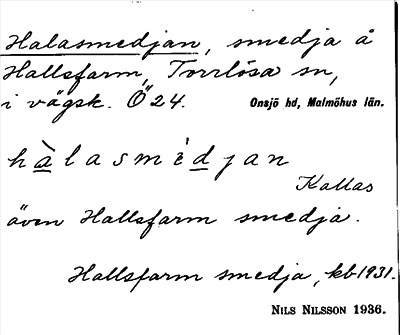 Halasmedjan, smedja å
Hallsfarm, Torrlösa sn,
i vägsk. Ö24. Onsjö hd, Malmöhus län.
hàlasmèdjan
Kallas
även Hallsfarm smedja.
Hallsfarm smedja, kb 1931.
NILS NILSSON 1936.